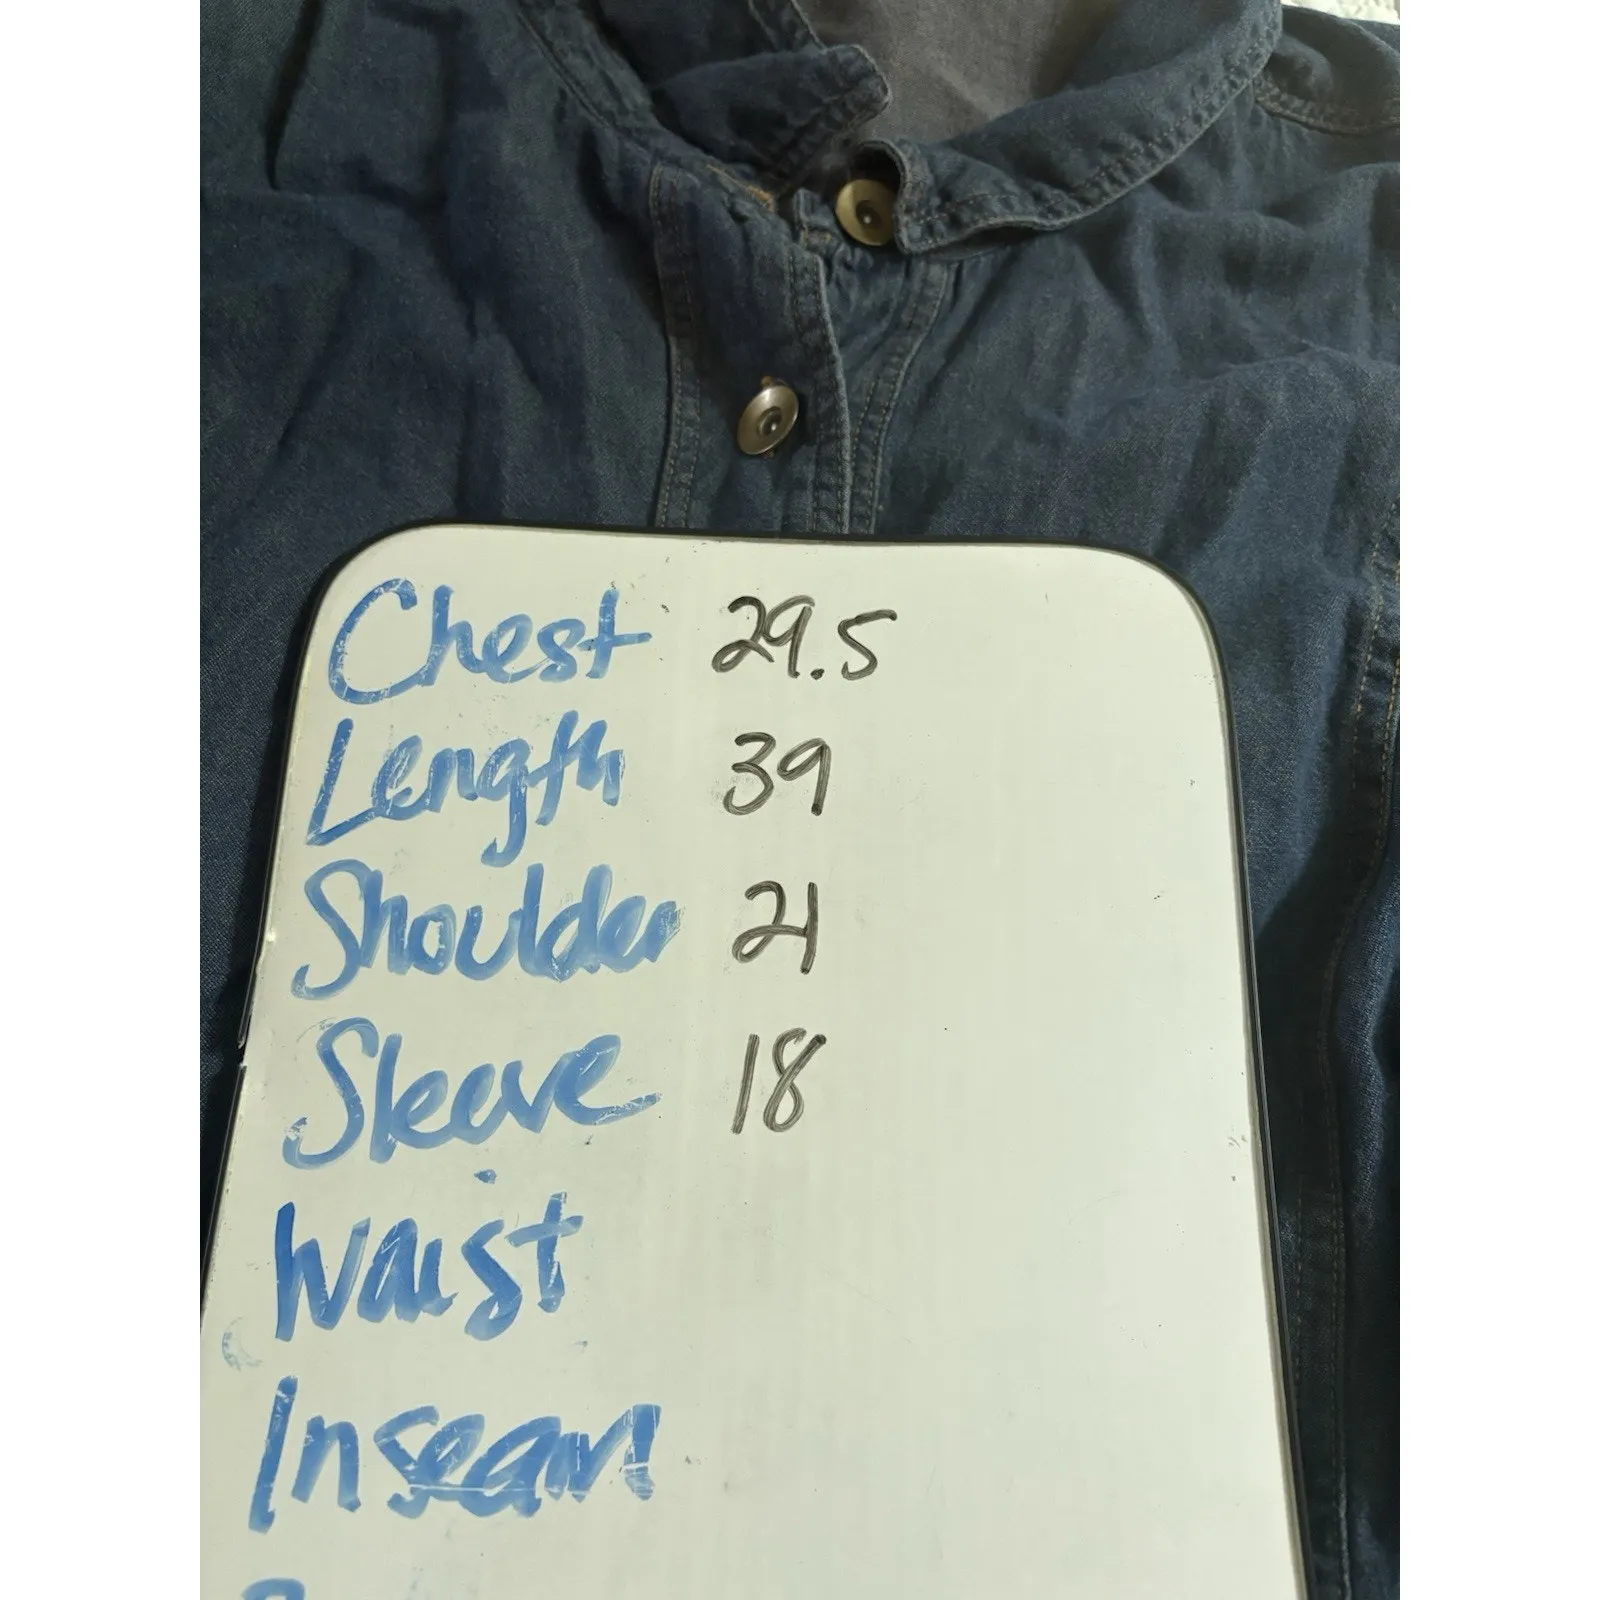 Chest 29.5
Length 39
Shoulder 21
Sleeve 18
Waist
Inseam